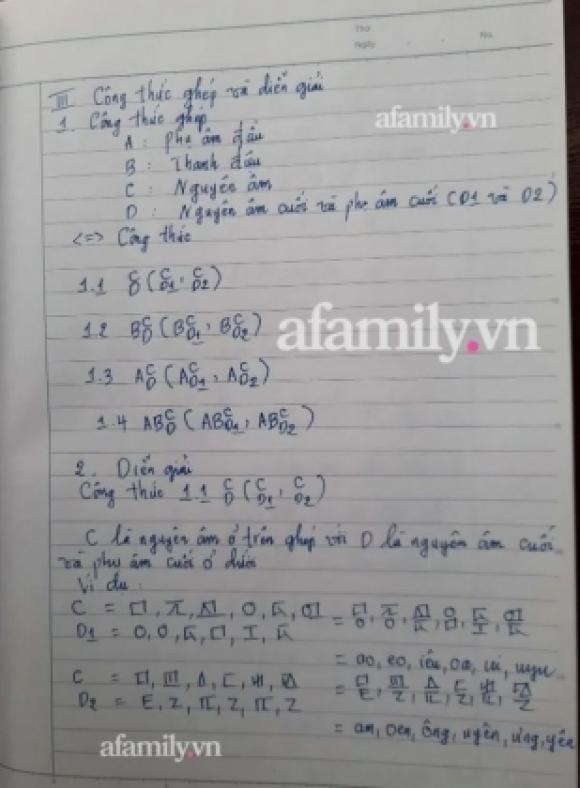 Thứ
Ngày
No.
III Công thức ghép và diễn giải
1. Công thức ghép
afamily.vn
A : phụ âm đầu
B : Thanh đầu
C : Nguyên âm
D : Nguyên âm cuối và phụ âm cuối (D1 và D2)
<=> Công thức
1.1 C/D (C/D1, C/D2)
1.2 B C/D (B C/D1, B C/D2)
afamily.vn
1.3 A C/D (A C/D1, A C/D2)
1.4 AB C/D (AB C/D1, AB C/D2)
2. Diễn giải
Công thức 1.1 C/D (C/D1, C/D2)
C là nguyên âm ở trên ghép với D là nguyên âm cuối
và phụ âm cuối ở dưới
Ví dụ :
C =
D1 = O, O
= ao, eo, iêu, oa, ui, uyu
C =
D2 = E, Z
= am, oen, ông, uyên, ưng, yên
afamily.vn